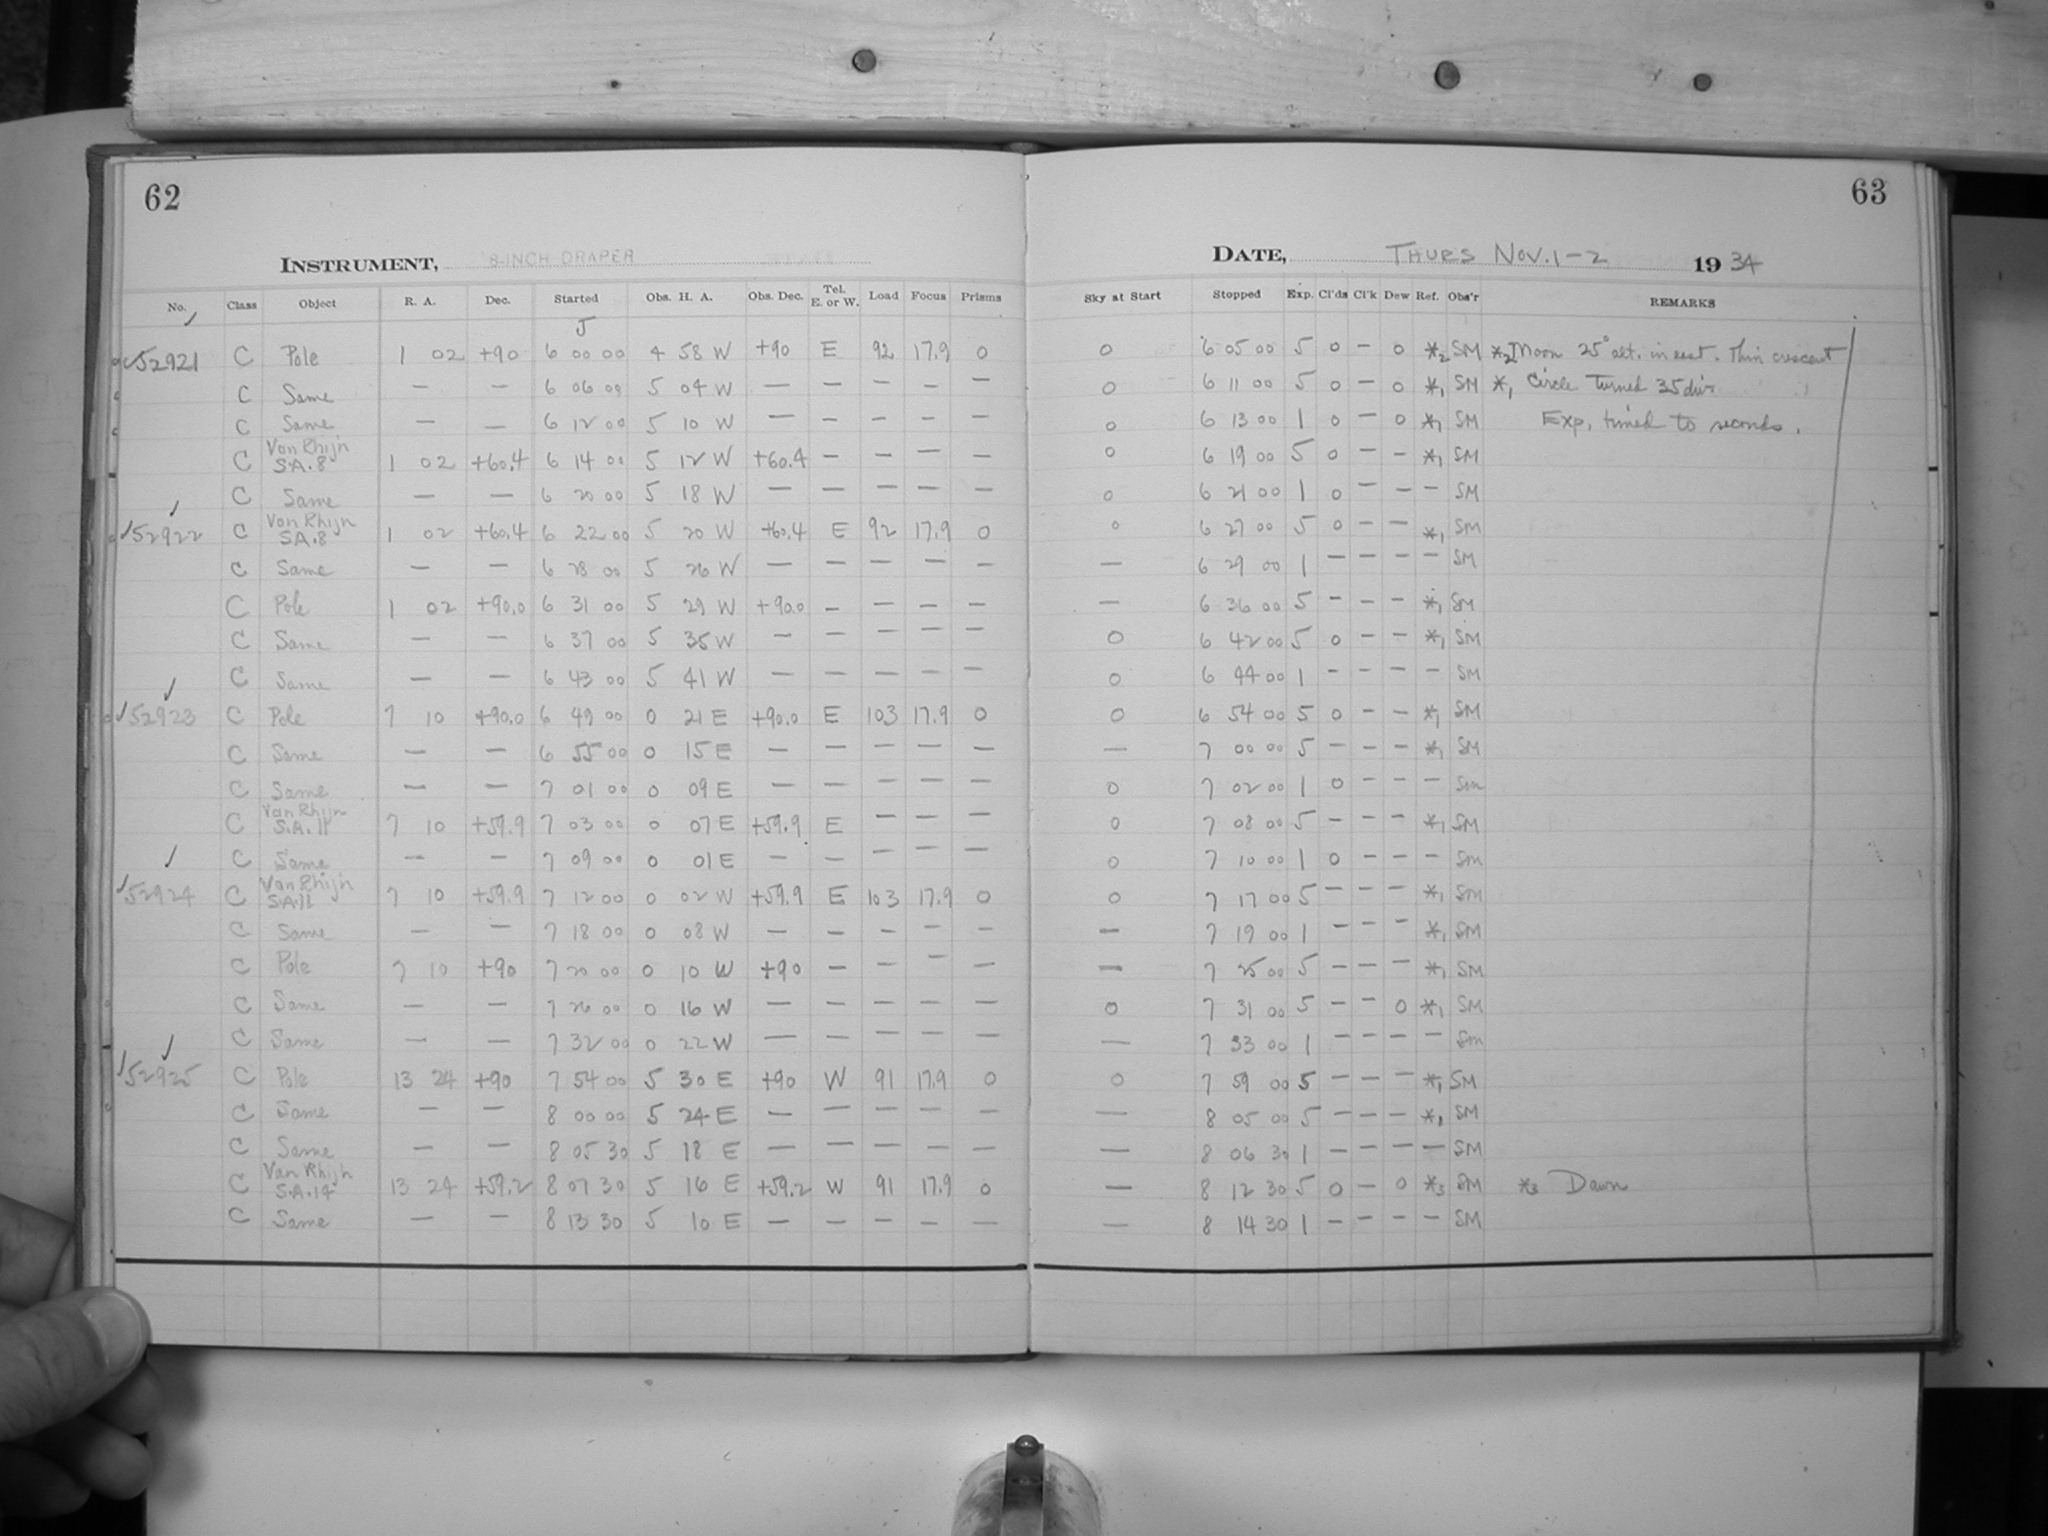 62
INSTRUMENT, 8-INCH DRAPER
No. Class Object R. A. Dec. Started Obs. H. A. Obs. Dec. Tel. E. or W. Load Focus Prisms
J
C52921 C Pole 1 02 +90 6 00 00 4 58 W +90 E 92 17.9 0
C Same — — 6 06 00 5 04 W — — — — —
C Same — — 6 12 00 5 10 W — — — — —
C Van Rhijn S.A. 8 1 02 +60.4 6 14 00 5 12 W +60.4 — — — —
C Same — — 6 20 00 5 18 W — — — — —
✓52922 C Van Rhijn S.A. 8 1 02 +60.4 6 22 00 5 20 W +60.4 E 92 17.9 0
C Same — — 6 28 00 5 26 W — — — — —
C Pole 1 02 +90.0 6 31 00 5 29 W +90.0 — — — —
C Same — — 6 37 00 5 35 W — — — — —
C Same — — 6 43 00 5 41 W — — — — —
✓52923 C Pole 7 10 +90.0 6 49 00 0 21 E +90.0 E 103 17.9 0
C Same — — 6 55 00 0 15 E — — — — —
C Same — — 7 01 00 0 09 E — — — — —
C Van Rhijn S.A. 11 7 10 +59.9 7 03 00 0 07 E +59.9 E — — —
C Same — — 7 09 00 0 01 E — — — — —
✓52924 C Van Rhijn S.A. 11 7 10 +59.9 7 12 00 0 02 W +59.9 E 103 17.9 0
C Same — — 7 18 00 0 08 W — — — — —
C Pole 7 10 +90 7 20 00 0 10 W +90 — — — —
C Same — — 7 26 00 0 16 W — — — — —
C Same — — 7 32 00 0 22 W — — — — —
✓52925 C Pole 13 24 +90 7 54 00 5 30 E +90 W 91 17.9 0
C Same — — 8 00 00 5 24 E — — — — —
C Same — — 8 05 30 5 18 E — — — — —
C Van Rhijn S.A. 14 13 24 +59.2 8 07 30 5 16 E +59.2 W 91 17.9 0
C Same — — 8 13 30 5 10 E — — — — —
63
DATE, THURS NOV. 1-2 1934
Sky at Start Stopped Exp. Cl'ds Cl'k Dew Ref. Obs'r REMARKS
0 6 05 00 5 0 — 0 *2 SM *2 Moon 25° alt. in east. Thin crescent
0 6 11 00 5 0 — 0 *1 SM *1 Circle turned 35 div.
0 6 13 00 1 0 — 0 *1 SM Exp. timed to seconds.
0 6 19 00 5 0 — — *1 SM
0 6 21 00 1 0 — — — SM
0 6 27 00 5 0 — — *1 SM
— 6 29 00 1 — — — — SM
— 6 36 00 5 — — — *1 SM
0 6 42 00 5 0 — — *1 SM
0 6 44 00 1 — — — — SM
0 6 54 00 5 0 — — *1 SM
— 7 00 00 5 — — — *1 SM
0 7 02 00 1 0 — — — Sm
0 7 08 00 5 — — — *1 SM
0 7 10 00 1 0 — — — Sm
0 7 17 00 5 — — — *1 Sm
— 7 19 00 1 — — — *1 SM
— 7 25 00 5 — — — *1 SM
0 7 31 00 5 — — 0 *1 SM
— 7 33 00 1 — — — — Sm
0 7 59 00 5 — — — *1 SM
— 8 05 00 5 — — — *1 SM
— 8 06 30 1 — — — — SM
— 8 12 30 5 0 — 0 *3 SM *3 Dawn
— 8 14 30 1 — — — — SM